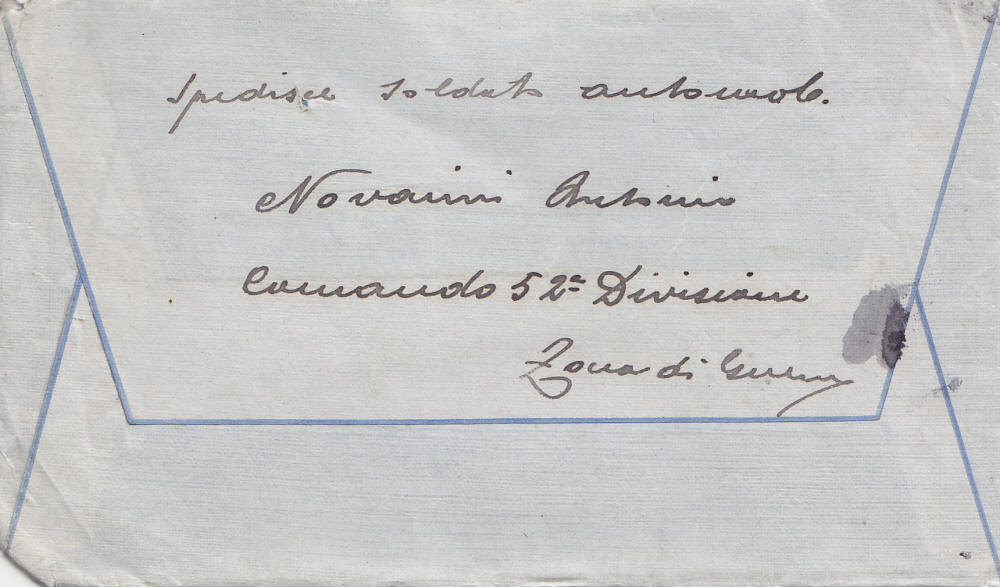 Spedisce soldato automob.
Novarini Antonio
Comando 52ª Divisione
Zona di Guerra